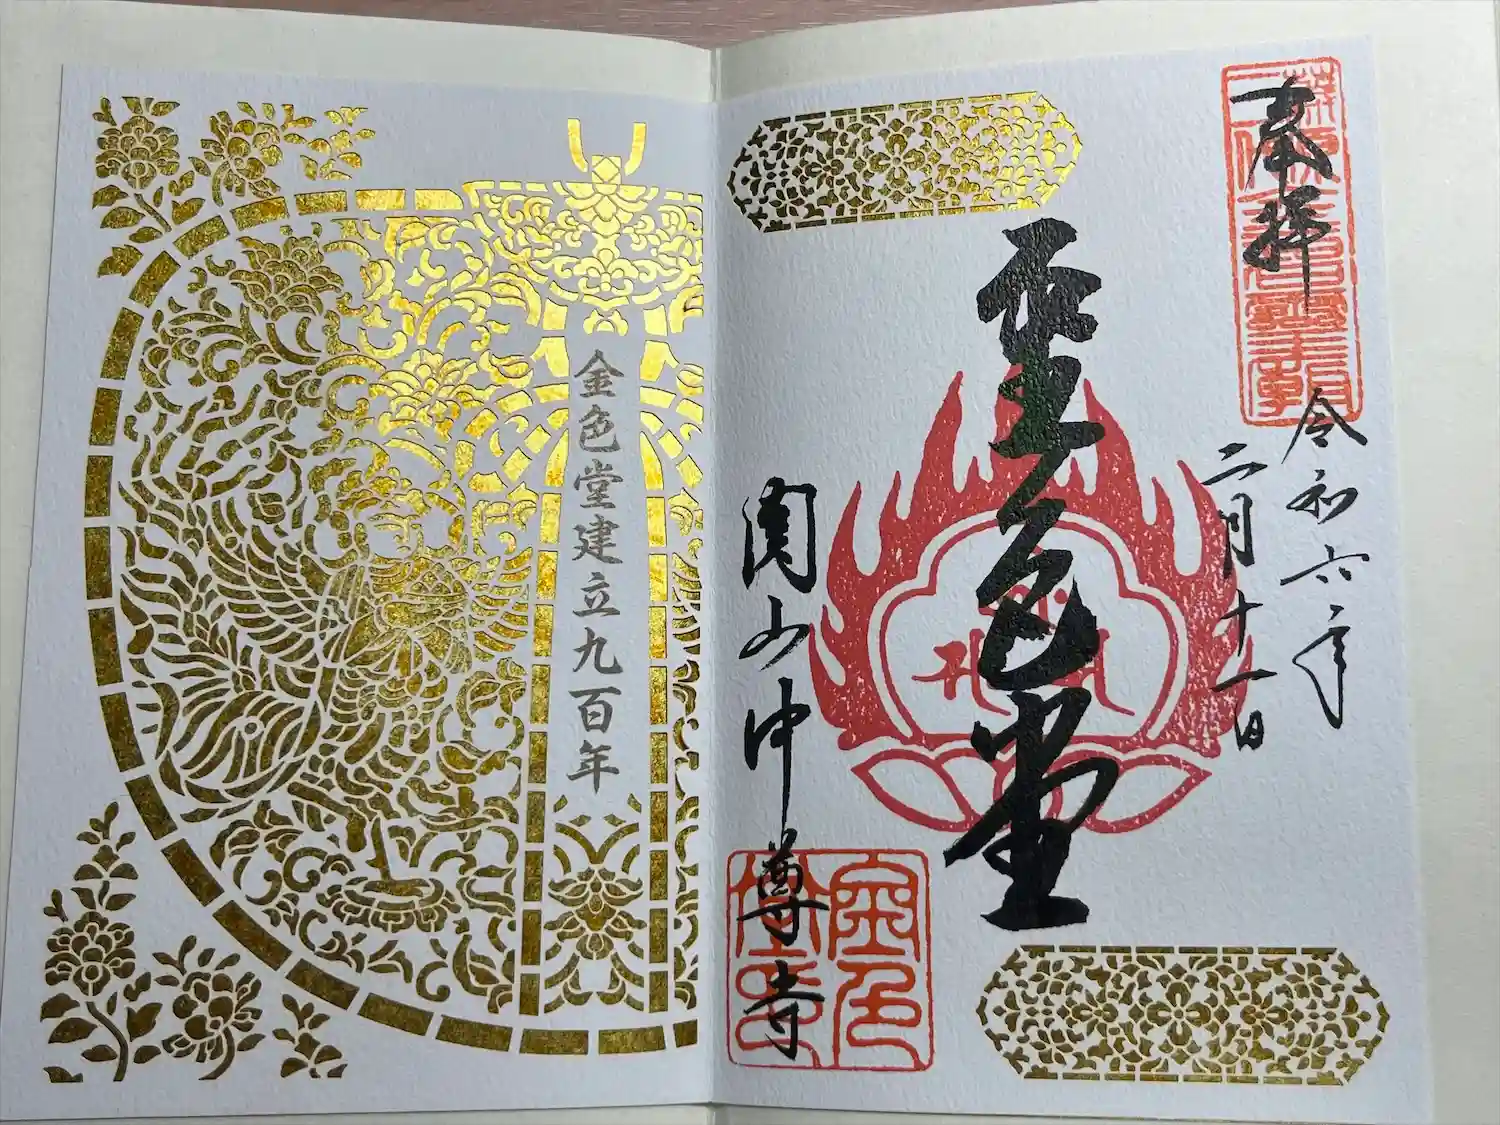 奉拝
令和六年
二月十一日
金色堂
関山中尊寺
金色
堂印
金色堂建立九百年